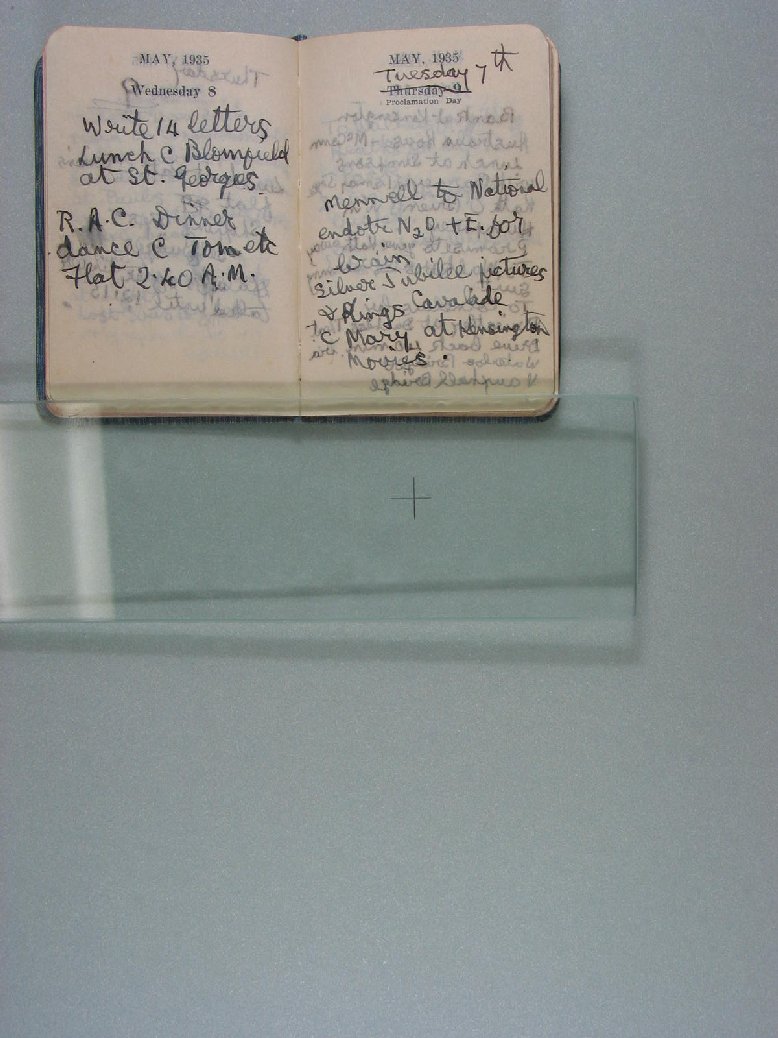 MAY, 1935
Wednesday 8
Write 14 letters
Lunch C Blomfield
at St. Georges.
R.A.C. Dinner
dance C Tom etc
Flat 2.40 A.M.
MAY, 1935
Tuesday 7th
Thursday 9
Proclamation Day
Mennell to National
endotr N2O + E. for
brain
Silver Jubilee pictures
& Kings Cavalcade
C Mary at Kensington
Movies.